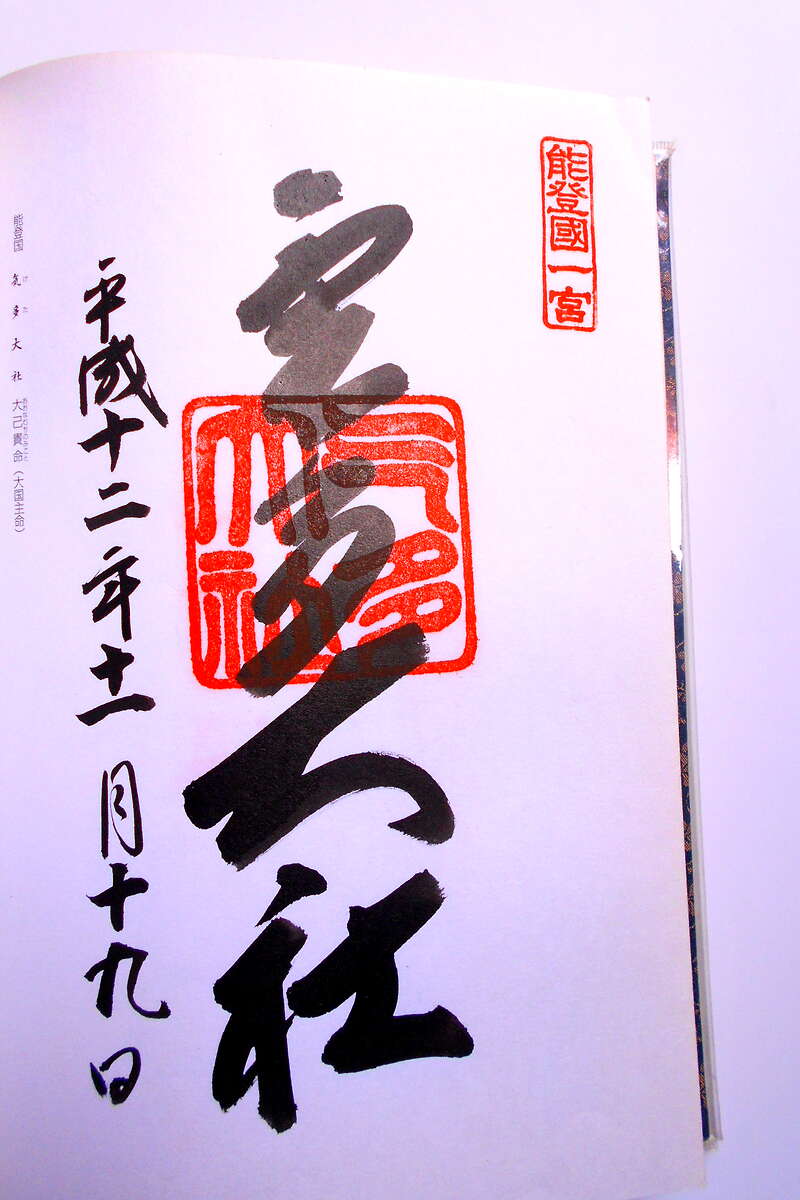 能登國一宮
氣多大社
气多大社
平成十二年十一月十九日
能登国 気多大社 大己貴命(大国主命)
けた